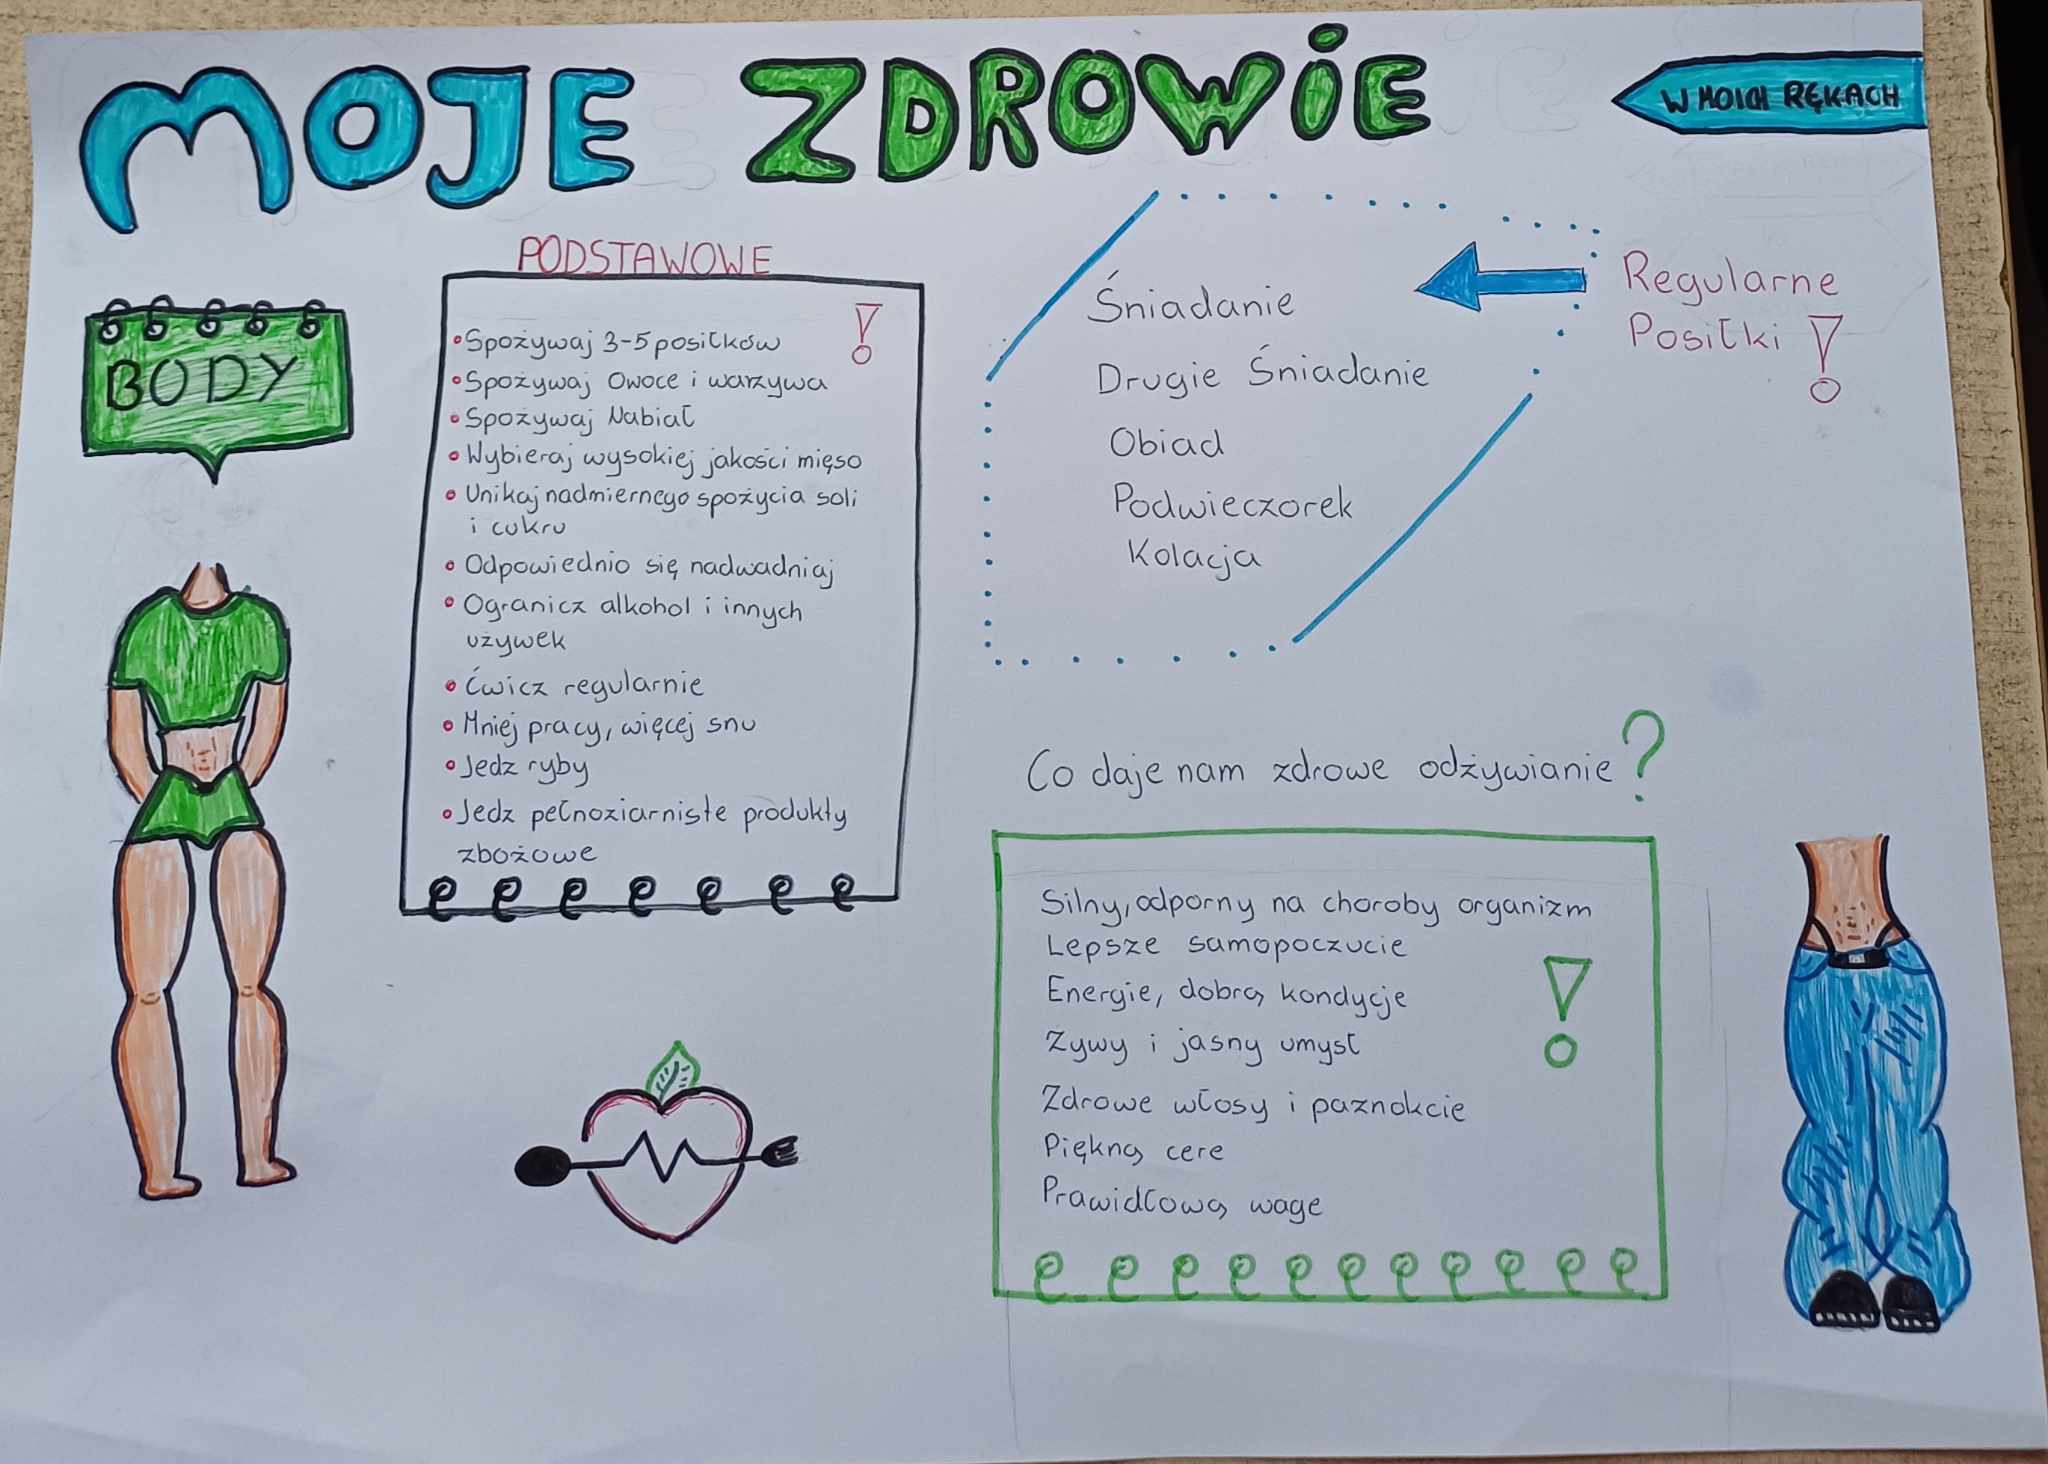 MOJE ZDROWIE
W MOICH RĘKACH
BODY
PODSTAWOWE
!
•Spożywaj 3-5 posiłków
•Spożywaj Owoce i warzywa
•Spożywaj Nabiał
•Wybieraj wysokiej jakości mięso
•Unikaj nadmiernego spożycia soli
i cukru
•Odpowiednio się nadwadniaj
•Ogranicz alkohol i innych
używek
•Ćwicz regularnie
•Mniej pracy, więcej snu
•Jedz ryby
•Jedz pełnoziarniste produkty
zbożowe
Regularne
Posiłki !
Śniadanie
Drugie Śniadanie
Obiad
Podwieczorek
Kolacja
Co daje nam zdrowe odżywianie?
Silny, odporny na choroby organizm
Lepsze samopoczucie
Energie, dobrą kondycje
Żywy i jasny umysł
!
Zdrowe włosy i paznokcie
Piękną cere
Prawidłową wage